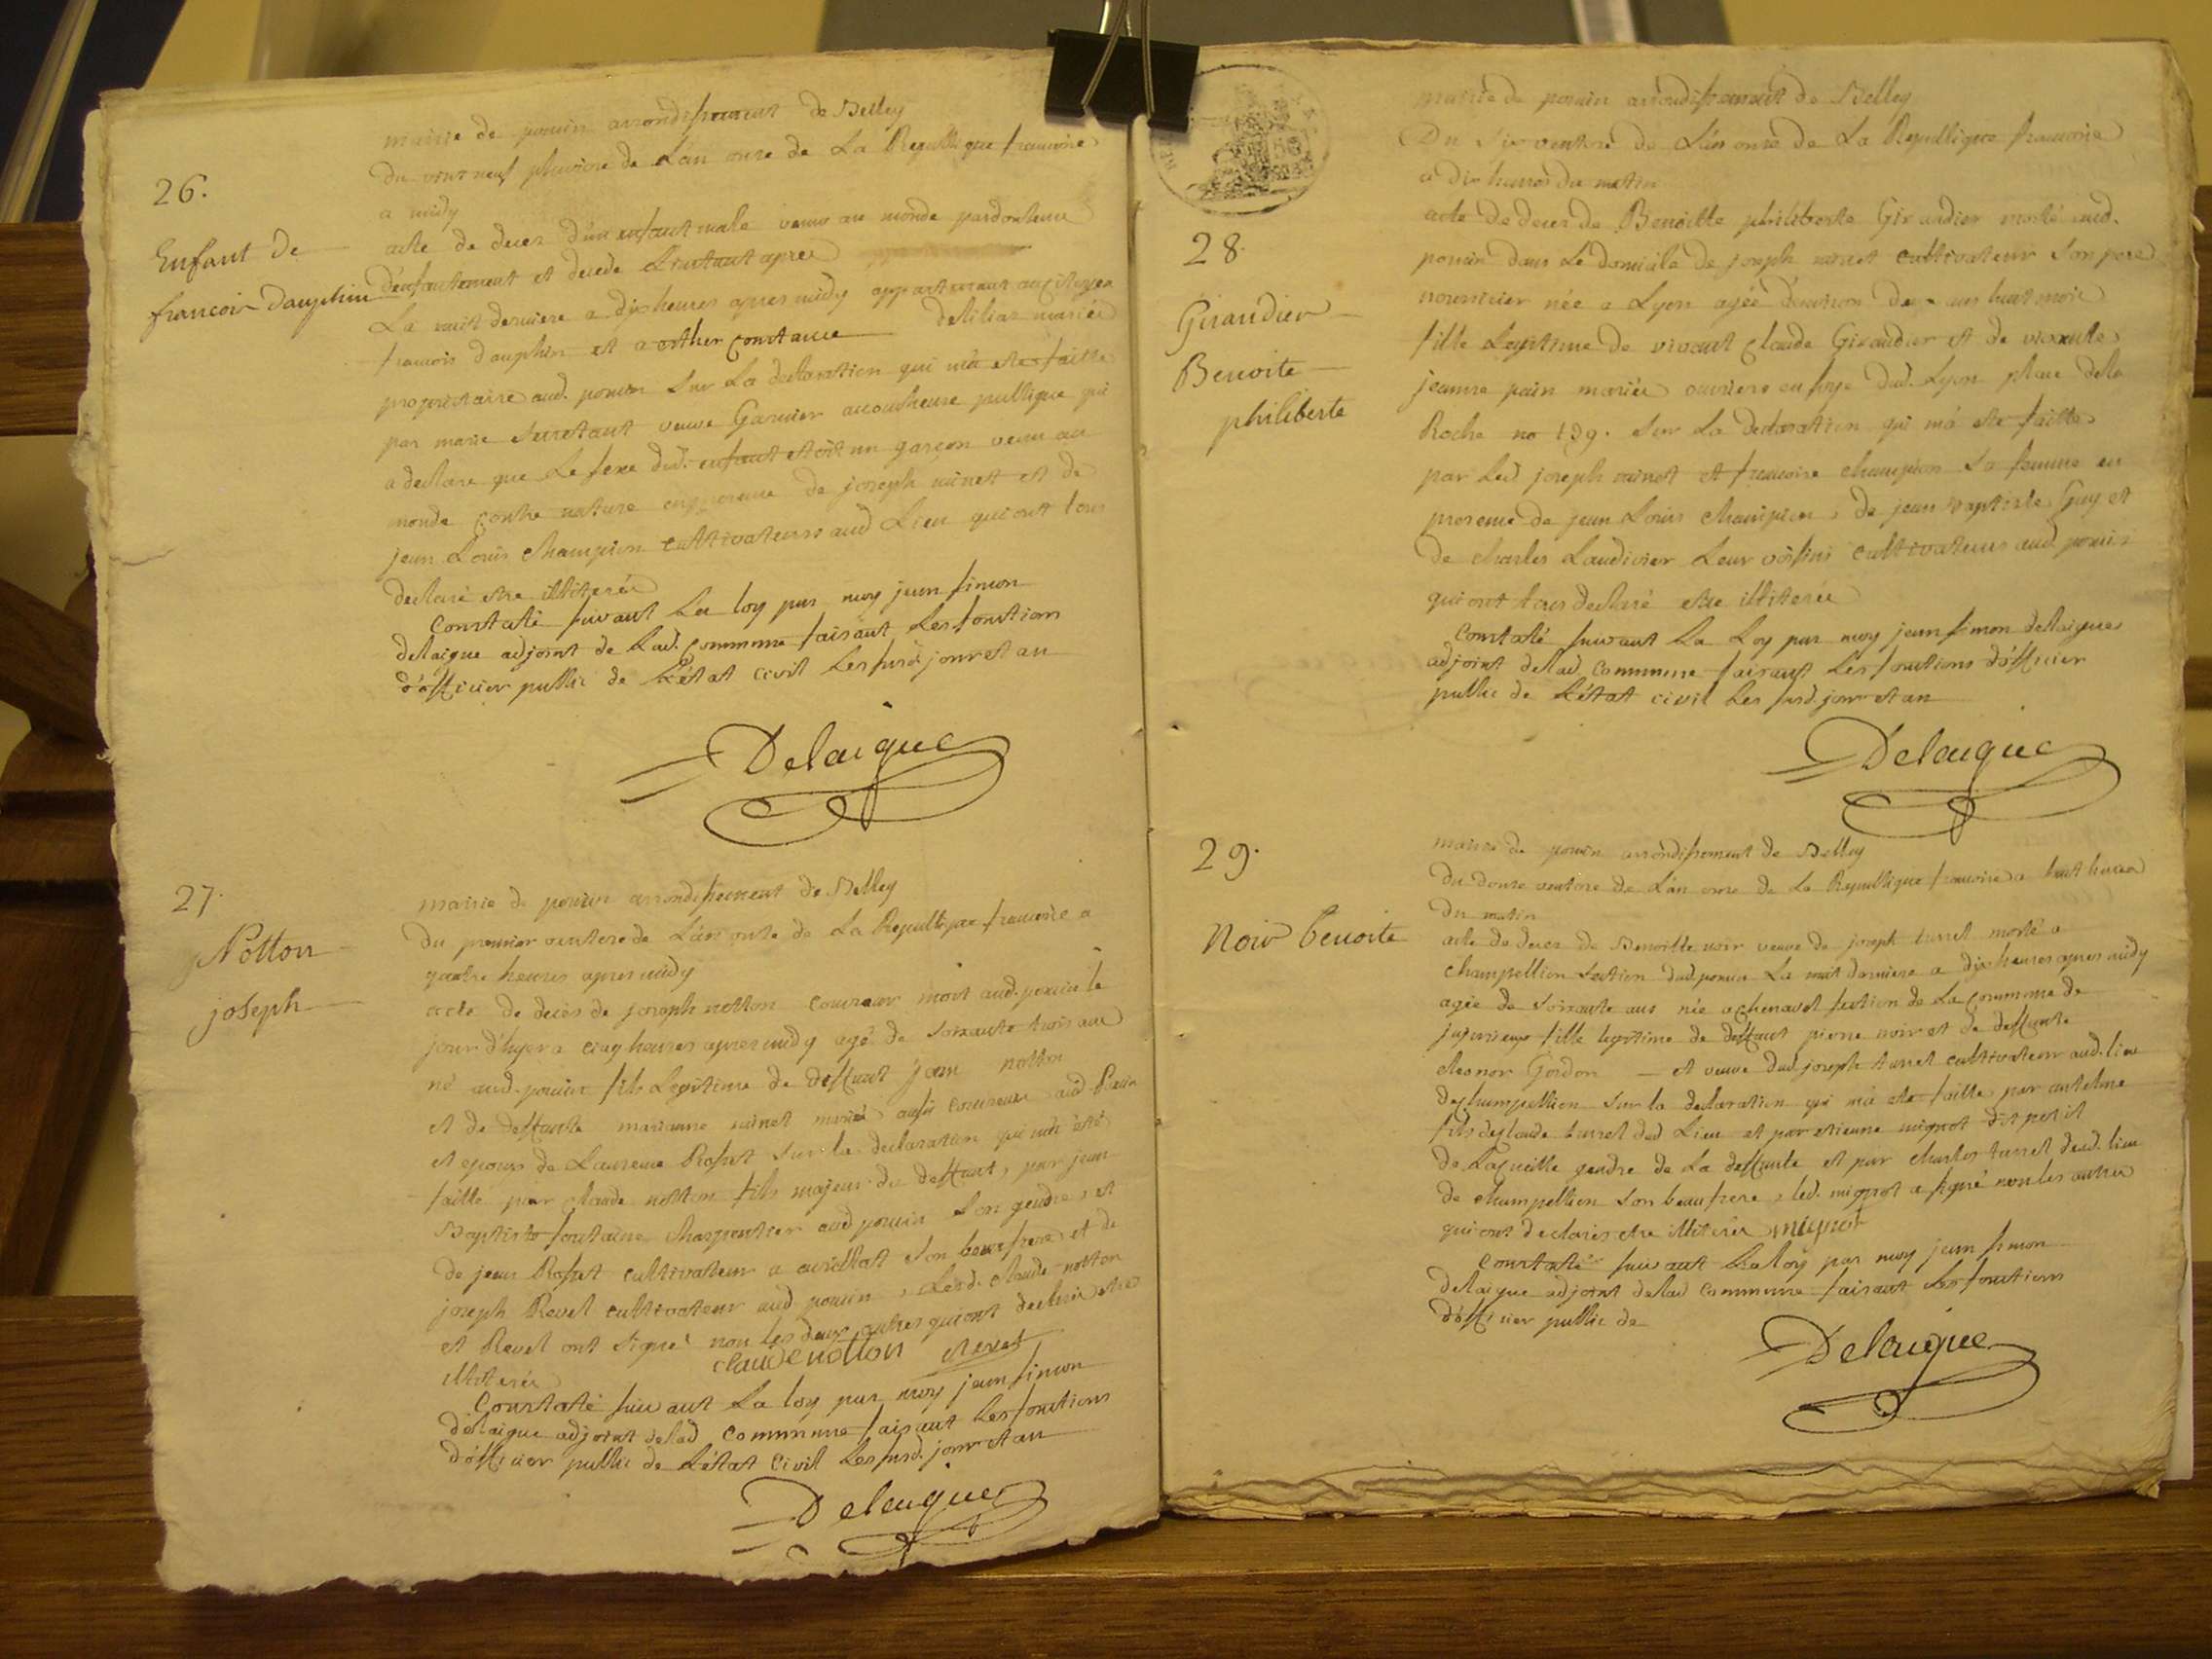 26.
Enfant de
francois Dauphin
mairie de poncin arrondissement de Belley
Du vint neuf pluviose de L'an onze de La Republique francoise
a midy
acte de deces d'un enfant male venu au monde
d'enfantement et decede L'instant apres
La nuit derniere a dix heures apres midy appartenant au citoyen
francois dauphin et a esther constance mariés
proprietaire aud. poncin sur La declaration qui m'a ete faitte
par marie veuve Garnier accoucheuse publique qui
a declare que Le sexe dud. enfant etoit un garçon venu au
monde contre nature en presence de joseph minet et de
jean Louis Champion cultivateurs aud Lieu qui ont tous
declaré etre illiterés
Constaté suivant La loy par moy jean simon
delaigue adjoint de Lad. commune faisant Les fonctions
d'officier public de L'état civil Les susd. jour et an
Delaigue
27.
Notton
joseph
mairie de poncin arrondissement de Belley
du premier ventose de L'an onze de La Republique francoise a
quatre heures apres midy
acte de deces de joseph notton mort aud. poncin le
jour d'hyer a cinq heures apres midy agé de soixante trois ans
né aud. poncin fils Legitime de deffunt jean notton
et de deffunte marianne minet mariés aud Poncin
et epoux de Laurence Rosset sur la declaration qui m'a été
faitte par claude notton fils majeur du deffunt, par jean
Baptiste fontaine charpentier aud poncin son gendre, et
de jean Rosset cultivateur a son beau frere et de
joseph Revel cultivateur aud poncin, Lesd. claude notton
et Revel ont signé non les deux autres qui ont declaré etre
illiterés
claude notton Revel
Constaté suivant La loy par moy jean simon
delaigue adjoint de lad commune faisant Les fonctions
d'officier public de L'état civil Les susd. jour et an
Delaigue
28.
Girandier
Benoite
philiberte
mairie de poncin arrondissement de Belley
Du six ventose de L'an onze de La Republique francoise
a dix heures du matin
acte de deces de Benoitte philiberte Girandier morte aud.
poncin dans Le domicile de joseph minet cultivateur son pere
nourricier née a Lyon agée d'environ deux ans huit mois
fille Legitime de vivant Claude Girandier et de vivante
jeanne pain mariés ouvriers en soye dud. Lyon place de la
Roche no 139. sur La declaration qui m'a ete faitte
par Led joseph minet et francoise champion sa femme en
presence de jean Louis champion, de jean baptiste Guy et
de charles Laudivier Leur voisins cultivateurs aud poncin
qui ont tous declaré etre illiterés
Constaté suivant La Loy par moy jean simon delaigue
adjoint de lad commune faisant Les fonctions d'officier
public de L'état civil Les susd. jour et an
Delaigue
29.
Noir benoite
mairie de poncin arrondissement de Belley
Du douze ventose de L'an onze de La Republique francoise a huit heures
du matin
acte de deces de Benoitte noir veuve de joseph turrel morte a
champellion section dud poncin La nuit derniere a dix heures apres midy
agée de soixante ans née a chenavel section de La commune de
jujurieux fille legitime de deffunt pierre noir et de deffunte
eleonor Gordon et veuve dud. joseph turrel cultivateur aud. lieu
de champellion sur la declaration qui m'a ete faitte par antelme
fils de claude turrel dud Lieu et par etienne mignot dit petit
de gendre de La deffunte et par charles turrel dud. lieu
de champellion son beau frere, led. mignot a signé non les autres
qui ont declarés etre illiterés mignot
Constaté suivant La loy par moy jean simon
delaigue adjoint de lad commune faisant Les fonctions
d'officier public de
Delaigue